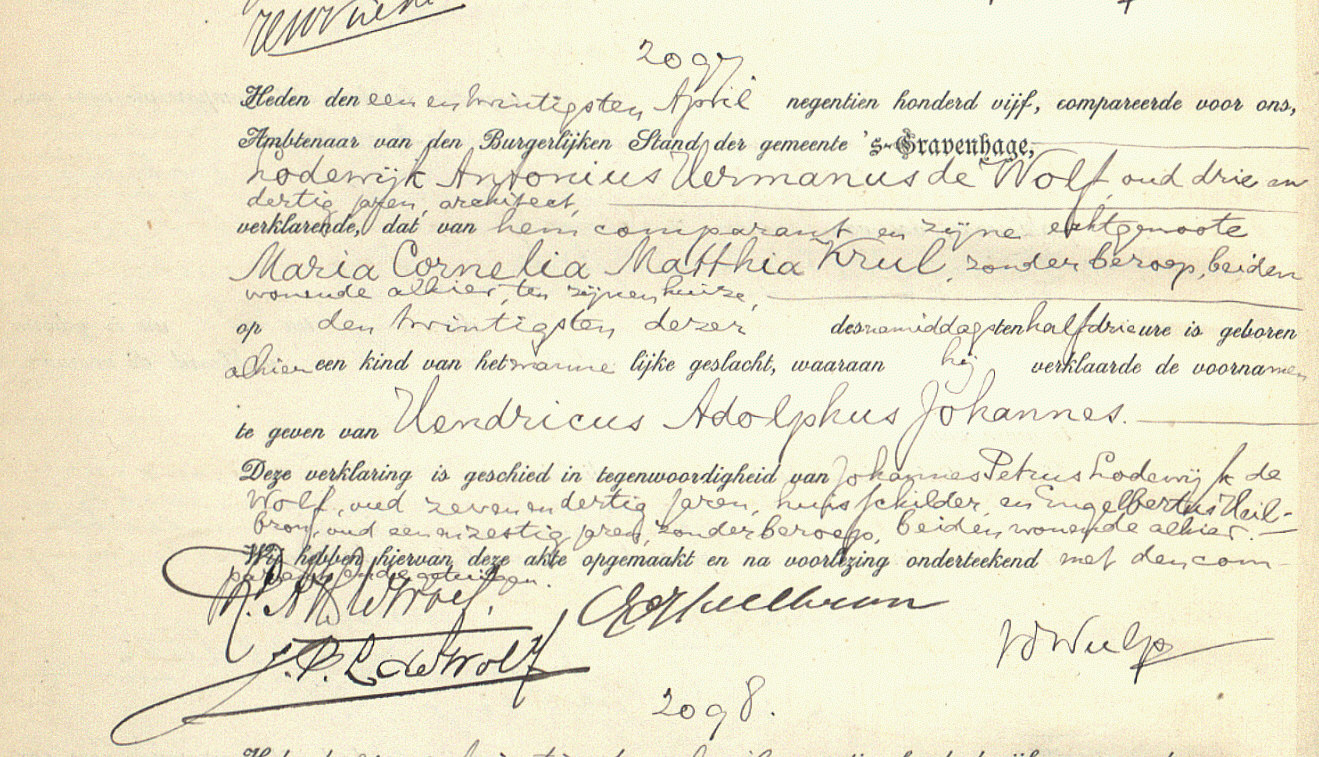 2097
Heden den een en twintigsten April negentien honderd vijf, compareerde voor ons,
Ambtenaar van den Burgerlijken Stand der gemeente 's-Gravenhage,
Lodewijk Antonius Hermanus de Wolf, oud drie en
dertig jaren, architect,
verklarende, dat van hem comparant en zijne echtgenoote
Maria Cornelia Matthia Krul, zonder beroep, beiden
wonende alhier, ten zijnen huize,
op den twintigsten dezer des namiddags ten half drie ure is geboren
alhier een kind van het mannelijke geslacht, waaraan hij verklaarde de voornamen
te geven van Hendricus Adolphus Johannes.
Deze verklaring is geschied in tegenwoordigheid van Johannes Petrus Lodewijk de
Wolf, oud zeven en dertig jaren, huisschilder, en Engelbertus Heil-
bron, oud een en zestig jaren, zonder beroep, beiden wonende alhier.
Wij hebben hiervan deze akte opgemaakt en na voorlezing onderteekend met den com-
parant en de getuigen.
L. A. H. de Wolf. E Heilbron
J. P. L. de Wolf
2098.